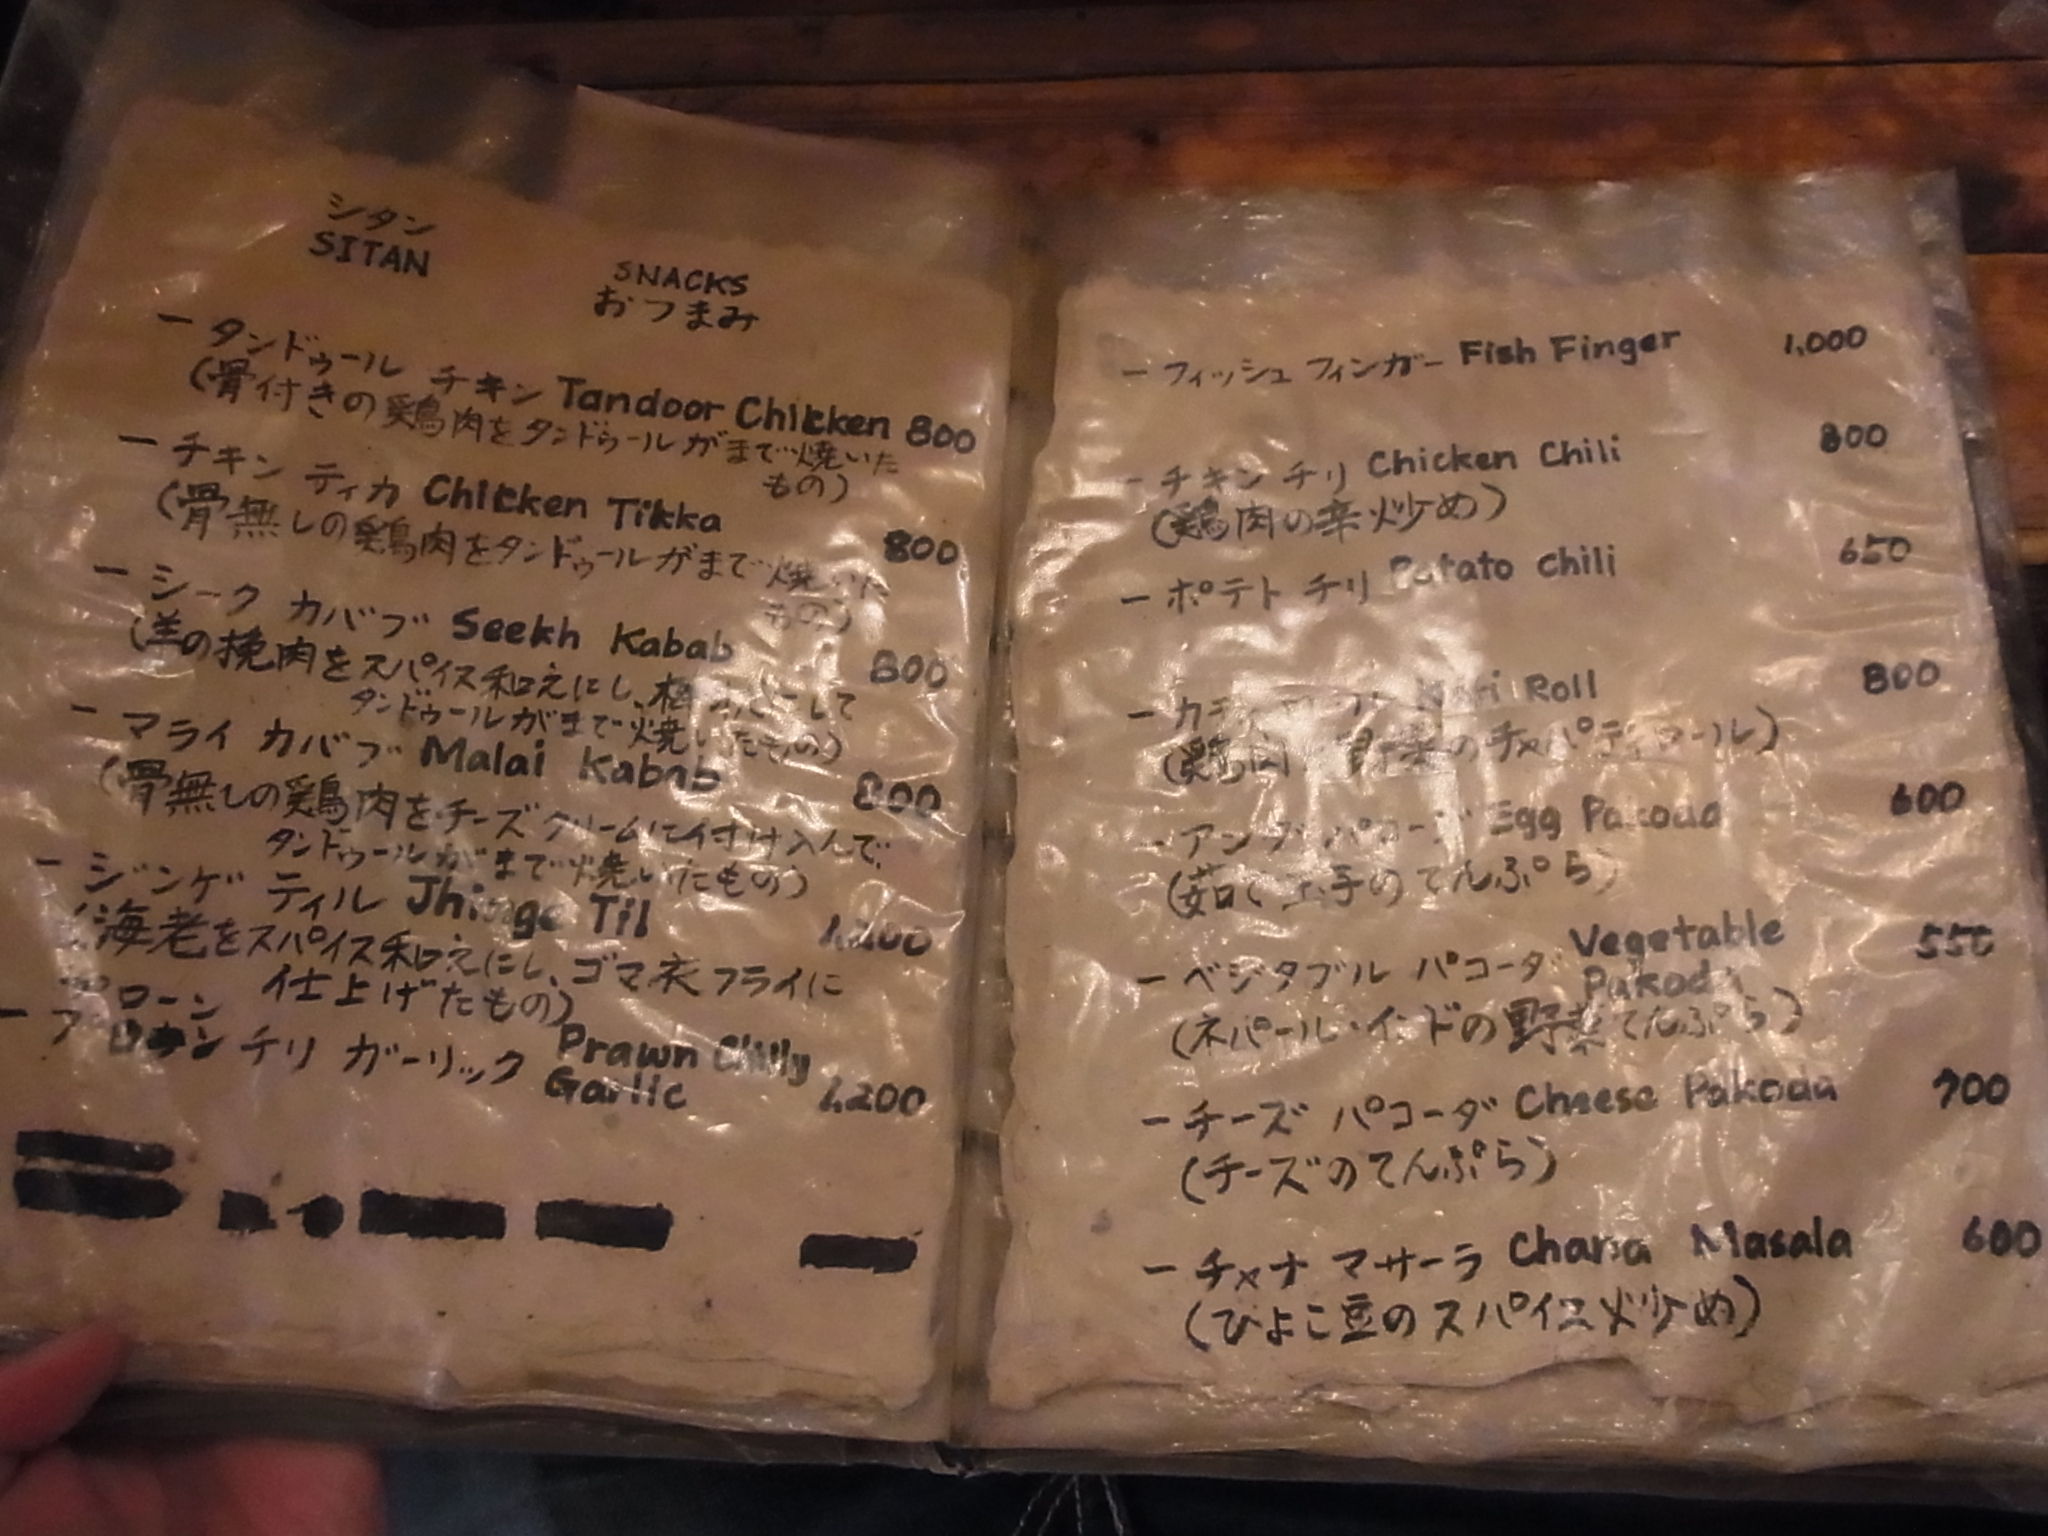 シタン
SITAN
SNACKS
おつまみ
ー タンドゥール チキン Tandoor Chicken 800
(骨付きの鶏肉をタンドゥールがまで焼いた
もの)
ー チキン ティカ Chicken Tikka 800
(骨無しの鶏肉をタンドゥールがまで焼いた
もの)
ー シーク カバブ Seekh Kabab 800
(羊の挽肉をスパイス和えにし、棒みたにして
タンドゥールがまで焼いたもの)
ー マライ カバブ Malai Kabab 800
(骨無しの鶏肉をチーズクリームに付け込んで、
タンドゥールがまで焼いたもの)
ー ジンゲ ティル Jhinge Til
(海老をスパイス和えにし、ゴマ衣フライに
仕上げたもの)
ー プローン チリ ガーリック Prawn Chilly
Garlic 1,200
ー フィッシュ フィンガー Fish Finger 1,000
ー チキン チリ Chicken Chili 800
(鶏肉の辛炒め)
ー ポテト チリ Potato chili 650
ー カティ ロール Kati Roll 800
(鶏肉 野菜のチャパティロール)
ー アンダ パコーダ Egg Pakoda 600
(茹で玉子のてんぷら)
ー ベジタブル パコーダ Vegetable
Pakoda 550
(ネパール・インドの野菜てんぷら)
ー チーズ パコーダ Cheese Pakoda 700
(チーズのてんぷら)
ー チャナ マサーラ Chana Masala 600
(ひよこ豆のスパイス炒め)